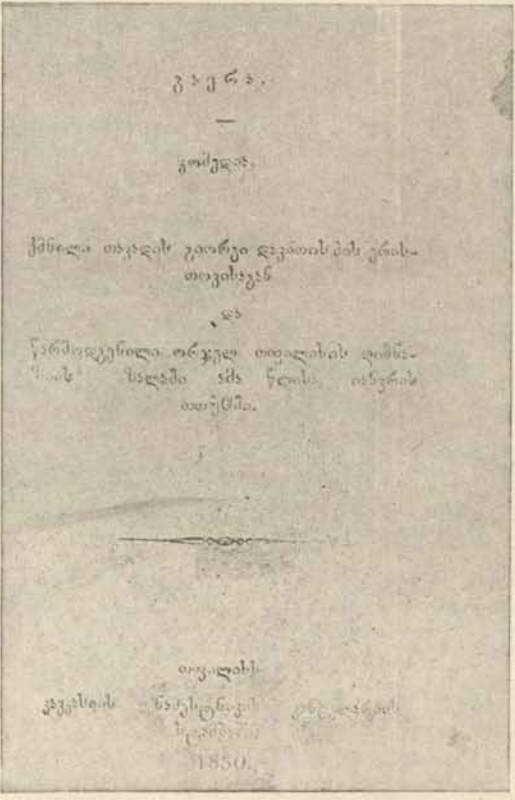 გაყრა.
კომედია,
ქმნილი თავადის გიორგი დავითის ძის ერის-
თოვისაგან
და
წარმოდგენილი ორჯელ თფილისის ღიმნა-
ზიის ზალაში ამა წლისა, იანვრის
თთუეში.
თფილისს
კავკასიის ნამესტნიკის კანცელარიის
1850.